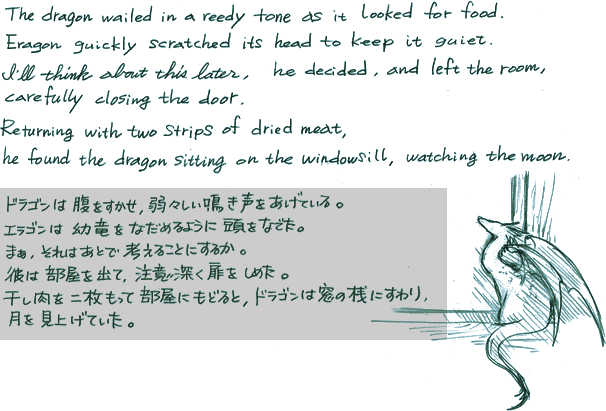 The dragon wailed in a reedy tone as it looked for food.
Eragon quickly scratched its head to keep it quiet.
I'll think about this later, he decided, and left the room,
carefully closing the door.
Returning with two strips of dried meat,
he found the dragon sitting on the windowsill, watching the moon.
ドラゴンは腹をすかせ，弱々しい鳴き声をあげている。
エラゴンは幼竜をなだめるように頭をなでた。
まぁ，それはあとで考えることにするか。
彼は部屋を出て，注意深く扉をしめた。
干し肉を二枚もって部屋にもどると，ドラゴンは窓の桟にすわり，
月を見上げていた。